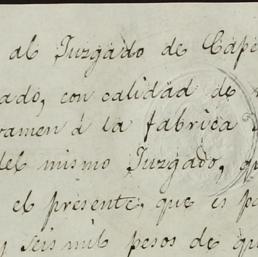 al Juzgado de Cape
ado, con calidad de
ramen á la fabrica
del mismo Juzgado, qu
el presente, que es pa
y seis mil pesos de qu